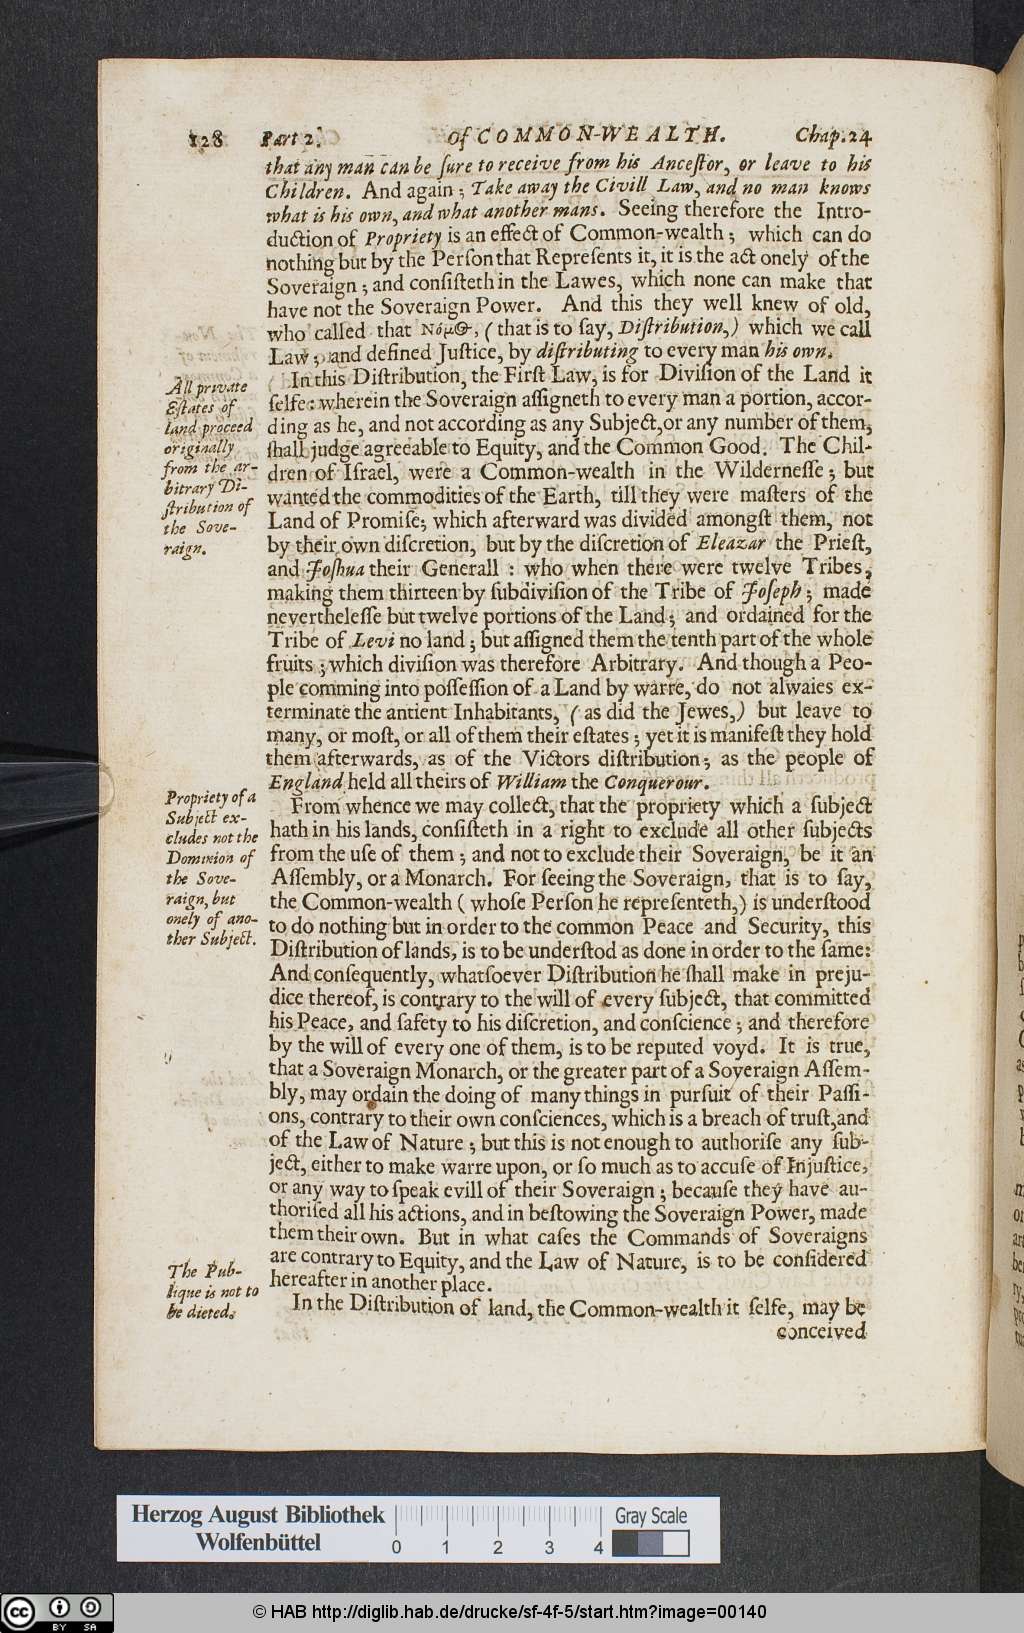 128 Part 2. Of COMMON-WEALTH. Chap. 24
that any man can be ſure to receive from his Anceſtor, or leave to his
Children. And again; Take away the Civill Law, and no man knows
what is his own, and what another mans. Seeing therefore the Intro-
duction of Propriety is an effect of Common-wealth; which can do
nothing but by the Perſon that Repreſents it, it is the act onely of the
Soveraign; and conſiſteth in the Lawes, which none can make that
have not the Soveraign Power. And this they well knew of old,
who called that Νόμος, (that is to ſay, Diſtribution,) which we call
Law; and defined Juſtice, by diſtributing to every man his own.
All private
Eſtates of
land proceed
originally
from the ar-
bitrary Di-
ſtribution of
the Sove-
raign.
In this Diſtribution, the Firſt Law, is for Diviſion of the Land it
ſelfe: wherein the Soveraign aſſigneth to every man a portion, accor-
ding as he, and not according as any Subject, or any number of them,
ſhall judge agreeable to Equity, and the Common Good. The Chil-
dren of Iſrael, were a Common-wealth in the Wilderneſſe; but
wanted the commodities of the Earth, till they were maſters of the
Land of Promiſe; which afterward was divided amongſt them, not
by their own diſcretion, but by the diſcretion of Eleazar the Prieſt,
and Joſhua their Generall: who when there were twelve Tribes,
making them thirteen by ſubdiviſion of the Tribe of Joſeph; made
nevertheleſſe but twelve portions of the Land; and ordained for the
Tribe of Levi no land; but aſſigned them the tenth part of the whole
fruits; which diviſion was therefore Arbitrary. And though a Peo-
ple comming into poſſeſſion of a Land by warre, do not alwaies ex-
terminate the antient Inhabitants, (as did the Jewes,) but leave to
many, or moſt, or all of them their eſtates; yet it is manifeſt they hold
them afterwards, as of the Victors diſtribution; as the people of
England held all theirs of William the Conquerour.
Propriety of a
Subject ex-
cludes not the
Dominion of
the Sove-
raign, but
onely of ano-
ther Subject.
From whence we may collect, that the propriety which a ſubject
hath in his lands, conſiſteth in a right to exclude all other ſubjects
from the uſe of them; and not to exclude their Soveraign, be it an
Aſſembly, or a Monarch. For ſeeing the Soveraign, that is to ſay,
the Common-wealth (whoſe Perſon he repreſenteth,) is underſtood
to do nothing but in order to the common Peace and Security, this
Diſtribution of lands, is to be underſtod as done in order to the ſame:
And conſequently, whatſoever Diſtribution he ſhall make in preju-
dice thereof, is contrary to the will of every ſubject, that committed
his Peace, and ſafety to his diſcretion, and conſcience; and therefore
by the will of every one of them, is to be reputed voyd. It is true,
that a Soveraign Monarch, or the greater part of a Soveraign Aſſem-
bly, may ordain the doing of many things in purſuit of their Paſſi-
ons, contrary to their own conſciences, which is a breach of truſt, and
of the Law of Nature; but this is not enough to authoriſe any ſub-
ject, either to make warre upon, or ſo much as to accuſe of Injuſtice,
or any way to ſpeak evill of their Soveraign; becauſe they have au-
thoriſed all his actions, and in beſtowing the Soveraign Power, made
them their own. But in what caſes the Commands of Soveraigns
are contrary to Equity, and the Law of Nature, is to be conſidered
hereafter in another place.
The Pub-
lique is not to
be dieted.
In the Diſtribution of land, the Common-wealth it ſelfe, may be
conceived
Herzog August Bibliothek
Wolfenbüttel
0 1 2 3 4
Gray Scale
cc BY SA
© HAB http://diglib.hab.de/drucke/sf-4f-5/start.htm?image=00140